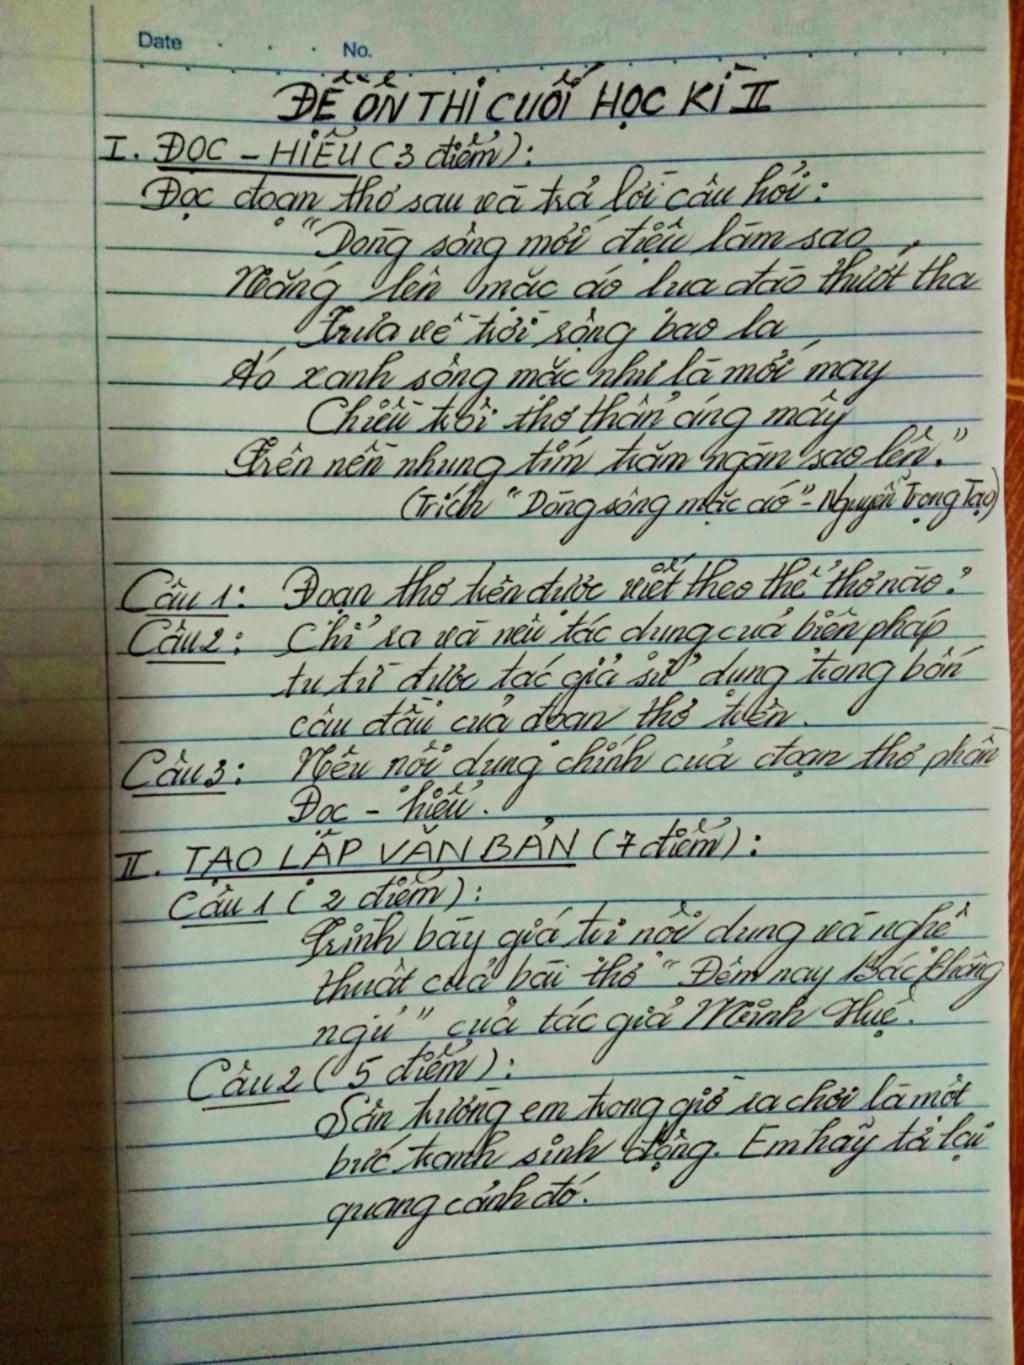 Date No.
ĐỀ ÔN THI CUỐI HỌC KÌ II
I. ĐỌC - HIỂU (3 điểm):
Đọc đoạn thơ sau và trả lời câu hỏi:
"Dòng sông mới điệu làm sao
Nắng lên mặc áo lụa đào thướt tha
Trưa về trời rộng bao la
Áo xanh sông mặc như là mới may
Chiều trôi thơ thẩn áng mây
Trên nền nhung tím trăm ngàn sao lên."
(Trích "Dòng sông mặc áo" - Nguyễn Trọng Tạo)
Câu 1: Đoạn thơ trên được viết theo thể thơ nào?
Câu 2: Chỉ ra và nêu tác dụng của biện pháp
tu từ được tác giả sử dụng trong bốn
câu đầu của đoạn thơ trên.
Câu 3: Nêu nội dung chính của đoạn thơ phần
Đọc - hiểu.
II. TẠO LẬP VĂN BẢN (7 điểm):
Câu 1 (2 điểm):
Trình bày giá trị nội dung và nghệ
thuật của bài thơ "Đêm nay Bác không
ngủ" của tác giả Minh Huệ.
Câu 2 (5 điểm):
Sân trường em trong giờ ra chơi là một
bức tranh sinh động. Em hãy tả lại
quang cảnh đó.